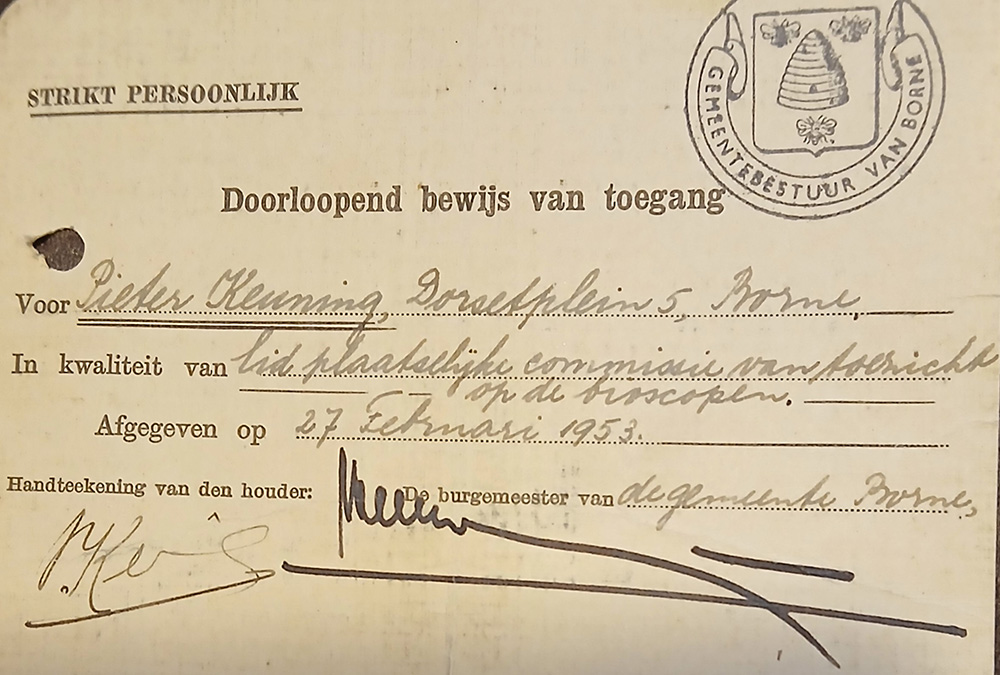 STRIKT PERSOONLIJK
GEMEENTEBESTUUR VAN BORNE
Doorloopend bewijs van toegang
Voor Pieter Keuning, Dorsetplein 5, Borne,
In kwaliteit van lid plaatselijke commissie van toezicht
op de bioscopen.
Afgegeven op 27 Februari 1953.
Handteekening van den houder:
De burgemeester van de gemeente Borne,